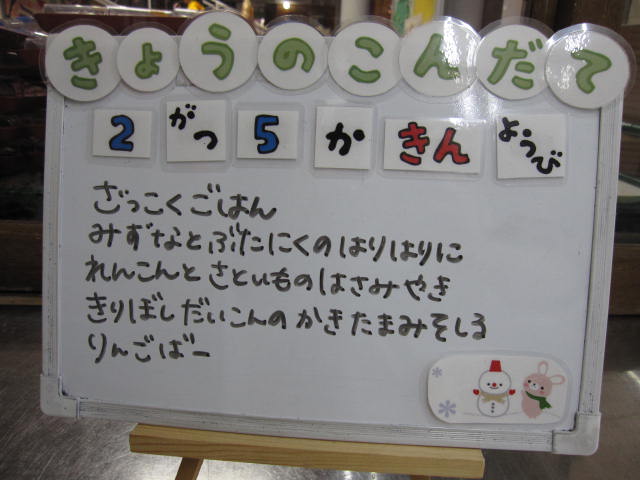 きょうのこんだて
2がつ5かきんようび
ざっこくごはん
みずなとぶたにくのはりはりに
れんこんとさといものはさみやき
きりぼしだいこんのかきたまみそしる
りんごばー